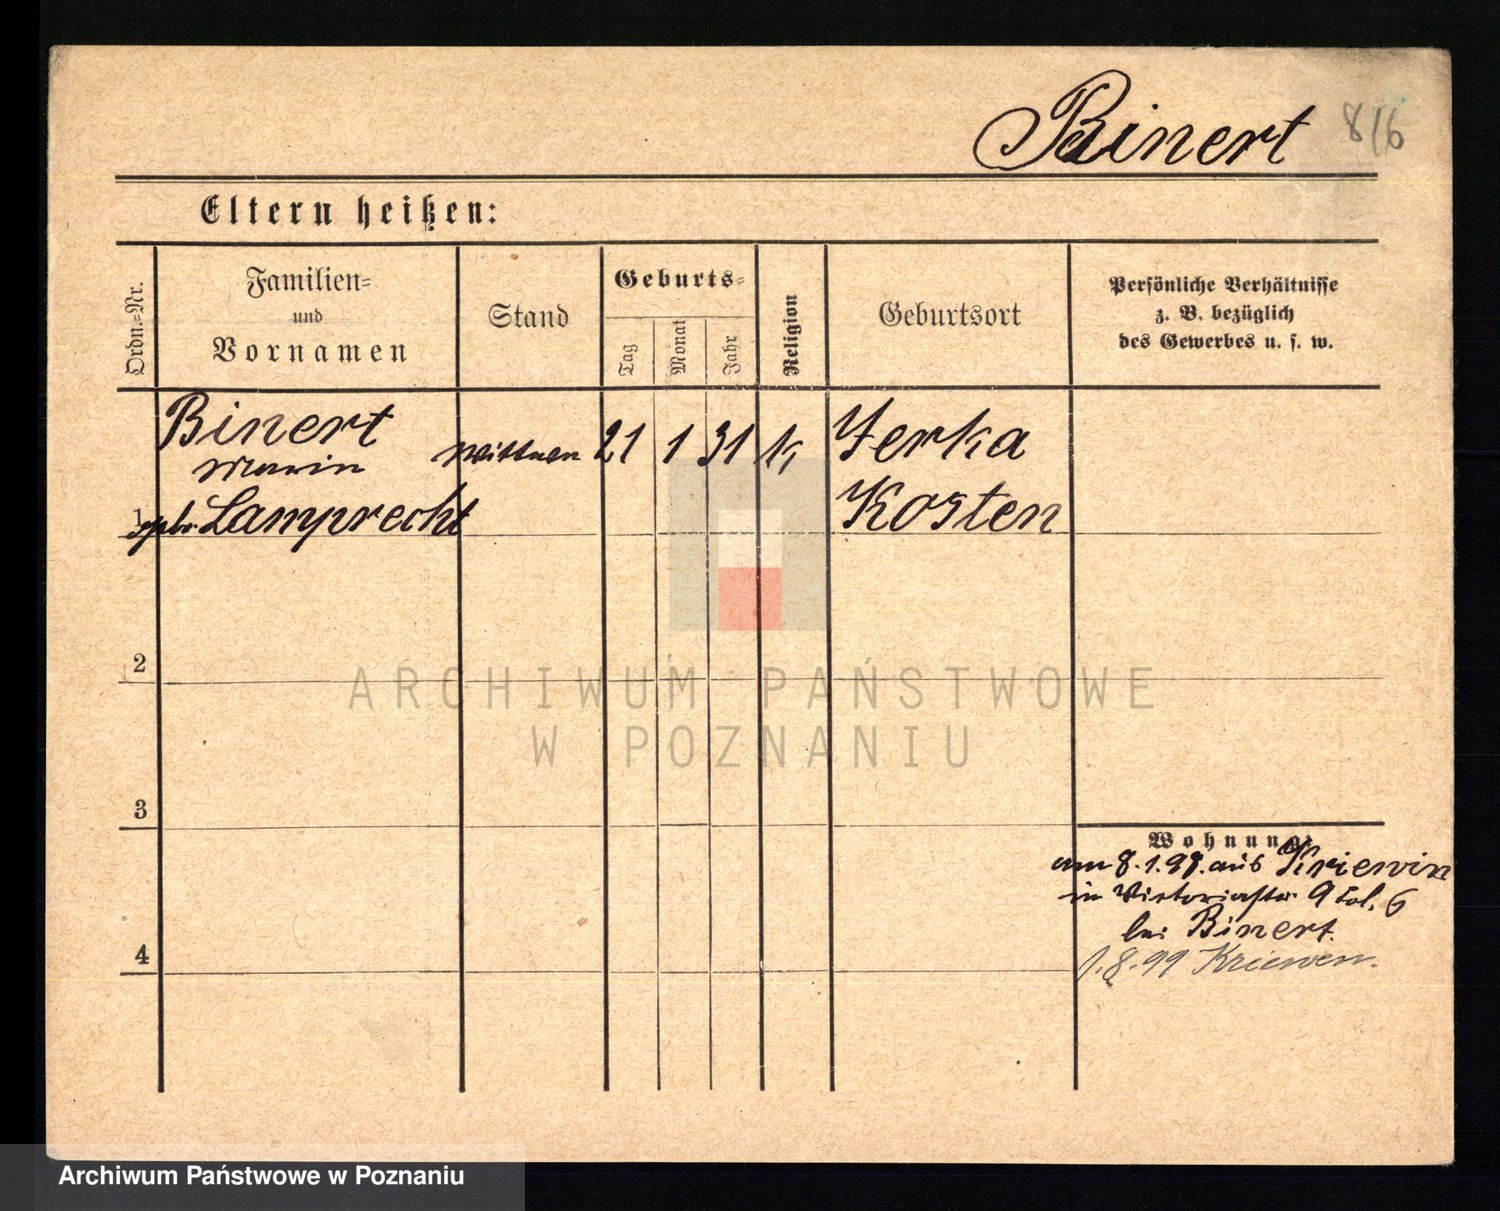 Binert 8/6
Eltern heißen:
Ordn.-Nr.
Familien-
und
Vornamen
Stand
Geburts-
Tag
Monat
Jahr
Religion
Geburtsort
Persönliche Verhältnisse
z. B. bezüglich
des Gewerbes u. s. w.
Binert
Marin
geb. Lamprecht
1
Wittwe
21 1 31 k
Jerka
Kosten
2
3
4
Wohnung:
am 8.1.98. aus Kriewin
in Victoriastr. 9 6
bei Binert.
1.8.99 Kriewen.
ARCHIWUM PAŃSTWOWE
W POZNANIU
Archiwum Państwowe w Poznaniu